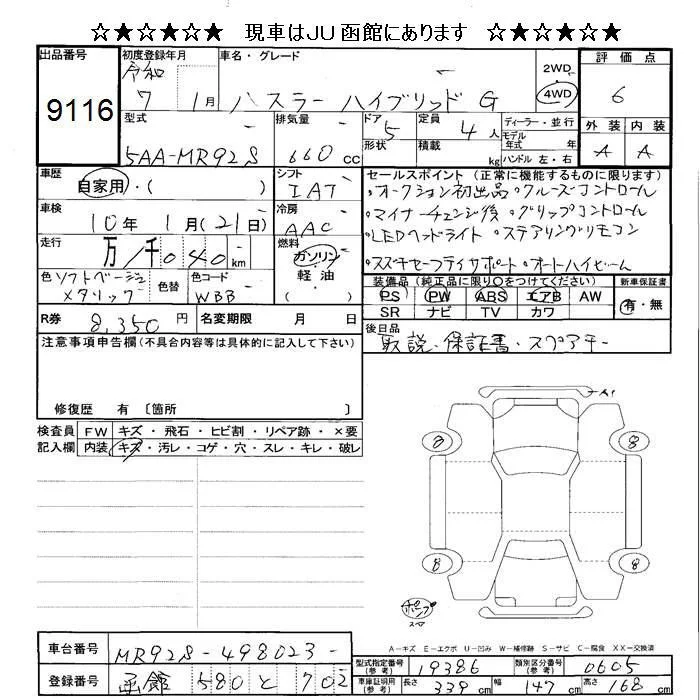 ☆★☆★☆★ 現車はJU函館にあります ☆★☆★☆★
出品番号
9116
初度登録年月
令和
7 1月
車名・グレード
ハスラー ハイブリッド G
2WD
4WD
評価点
6
外装 内装
A A
型式
5AA-MR92S
排気量
660 cc
ドア 5
形状
定員 4人
積載 kg
ディーラー・並行
モデル
年式 年
ハンドル 左・右
車歴
自家用・( )
シフト
IAT
セールスポイント (正常に機能するものに限ります)
・オークション初出品・クルーズコントロール
・マイナーチェンジ後・グリップコントロール
・LEDヘッドライト・ステアリングリモコン
・スズキセーフティサポート・オートハイビーム
車検
10年 1月(21日)
冷房
AAC
走行
万 千 0 4 0 km
燃料
ガソリン
軽油
( )
色 ソフトベージュ
メタリック
色替
色コード
WBB
装備品 (純正品に限り○をつけてください)
PS PW ABS エアB AW
SR ナビ TV カワ
新車保証書
有・無
R券 8,350 円
名変期限 月 日
後日品
取説・保証書・スペアキー
注意事項申告欄(不具合内容等は具体的に記入して下さい)
修復歴 有 〔箇所 〕
検査員
記入欄
FW キズ・飛石・ヒビ割・リペア跡・×要
内装 キズ・汚レ・コゲ・穴・スレ・キレ・破レ
A1
8 8
8 8
ポンプ
スペア
A-キズ E-エクボ U-凹み W-補修跡 S-サビ C-腐食 XX-交換済
車台番号 MR92S-498023-
登録番号 函館 580 と 702
型式指定番号
(参考)
19386
類別区分番号
(参考)
0605
車庫証明用
(参考)
長さ 339cm 幅 147cm 高さ 168cm